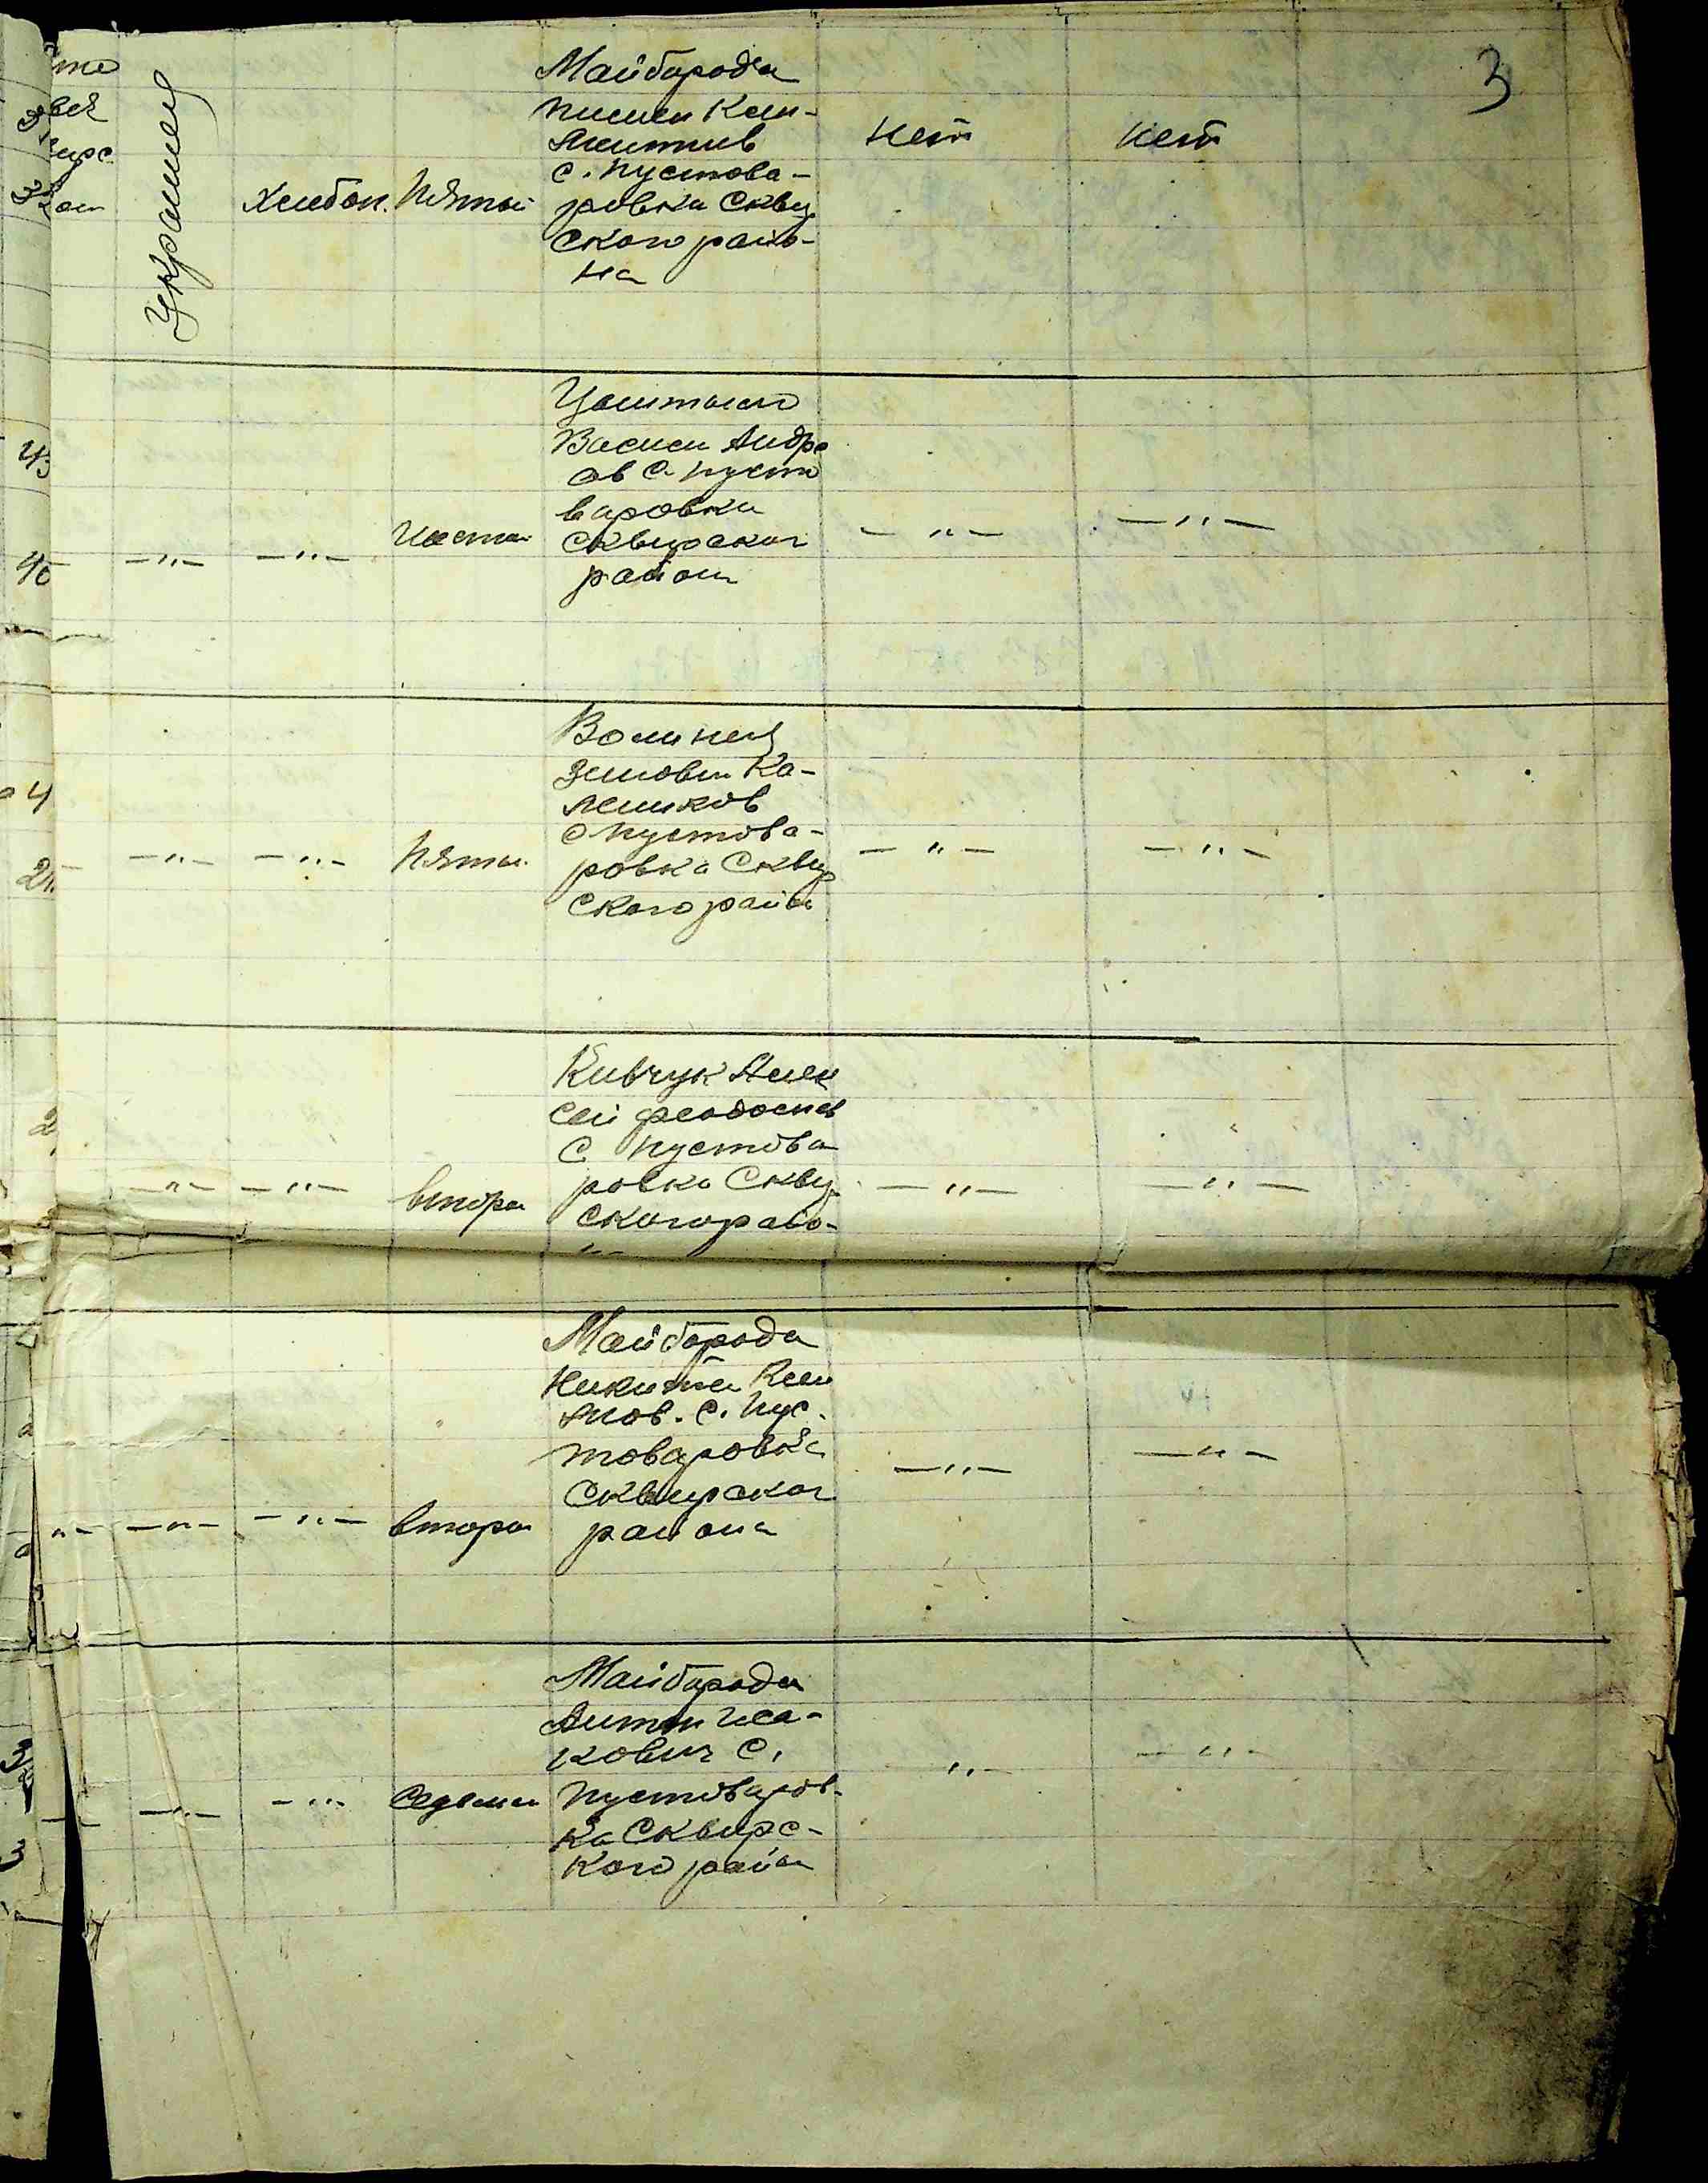 3
Украинец
Хлебоп.
Пятый
Майборода
Пилип Кли-
ментиев
с. Пустова-
ровка Сквир
ского райо-
на
нет
нет
43
40
—"—
—"—
Василий Андре
ев с Пусто
варовка
Сквирског
район
—"—
—"—
4
—"—
—"—
Пяты
Волинец
Зиновий Ка-
леников
с Пустова-
ровка Сквир
ского район
—"—
—"—
2
—"—
—"—
втора
Кивчук Алек
сей Феодосиев
с Пустова
ровка Сквир
ского райо-
на
—"—
—"—
—"—
—"—
—"—
втора
Майборода
Никита
с. Пус-
товаровка
Сквирског
района
—"—
—"—
3
3
—"—
—"—
Седьмы
Майборода
Антон Иса-
кович с.
Пустоваров-
ка Сквирс-
кого район
"—
—"—